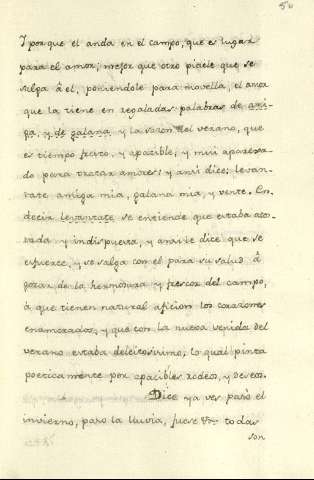 50
I porque el anda en el campo, que es lugar
para el amor; mejor que otro pidele que se
salga à el, poniendole para movella, el amor
que la tiene en regaladas palabras de ami-
ga, y de galana, y la sazon del verano, que
es tiempo fresco, y apacible, y mui apareja-
do para tratar amores; y ansi dice: levan-
tate amiga mia, galana mia, y vente. En
decir levantate se entiende que estaba aco-
tada y indispuesta, y ansi le dice que se
esfuerce, y se salga con el para su salud à
gozar de la hermosura y frescor del campo,
à que tienen natural aficion los corazones
enamorados, y que con la nueva venida del
verano estaba deleitosisimo; lo qual pinta
poeticamente por apacibles rodeos, y deseos.
Dice ya ves pasò el
invierno, pasò la lluvia, fuese &c. todas
son